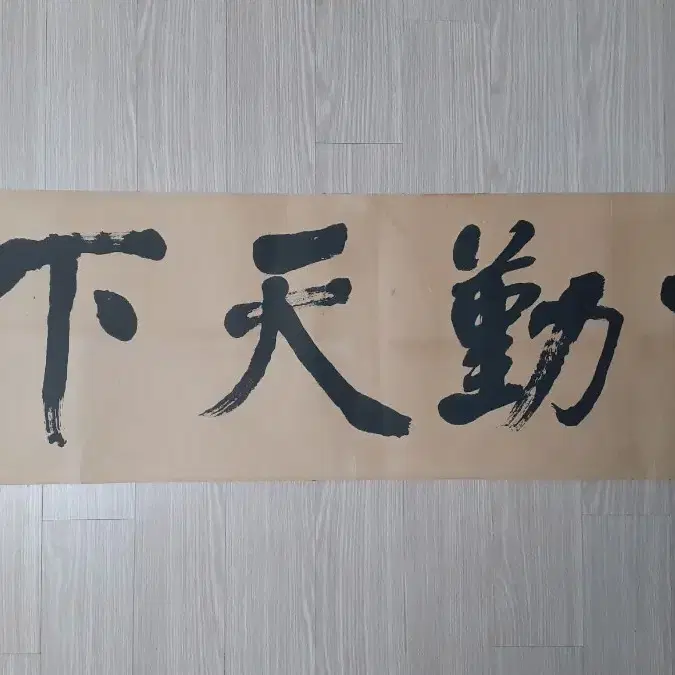 勤天下